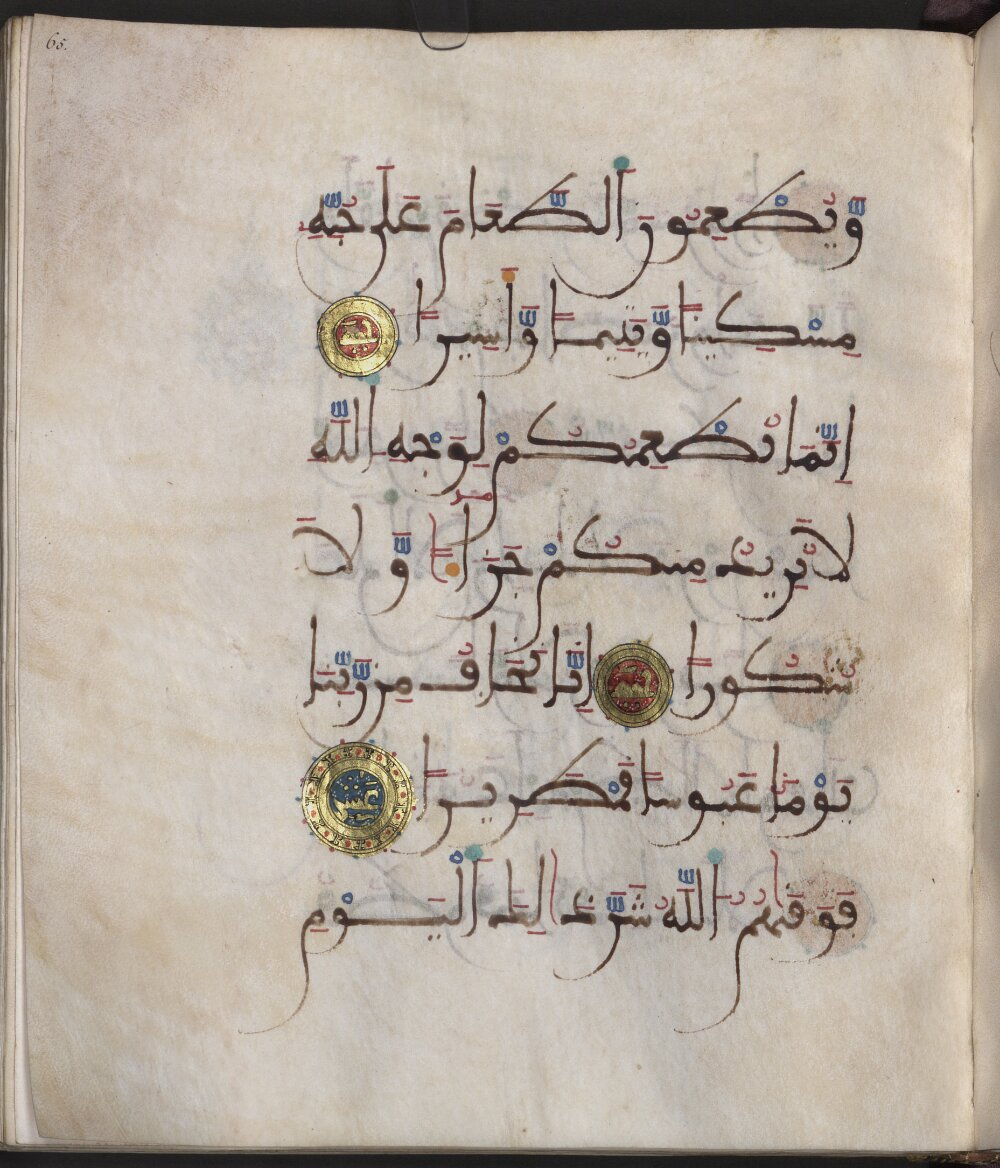 65.
وَّيُطْعِمُونَ اَلطَّعَامَ عَلَىٰ حُبِّهِۦ
مِسْكِيناً وَّيَتِيماً وَّأَسِيراً
اِنَّمَا نُطْعِمُكُمْ لِوَجْهِ اِللَّهِ
لَا نُرِيدُ مِنكُمْ جَزَآءً وَّلَا
شُكُوراً اِنَّا نَخَافُ مِن رَّبِّنَا
يَوْماً عَبُوساً قَمْطَرِيراً
فَوَقَىٰهُمُ اُللَّهُ شَرَّ ذَٰلِكَ اَلْيَوْمِ